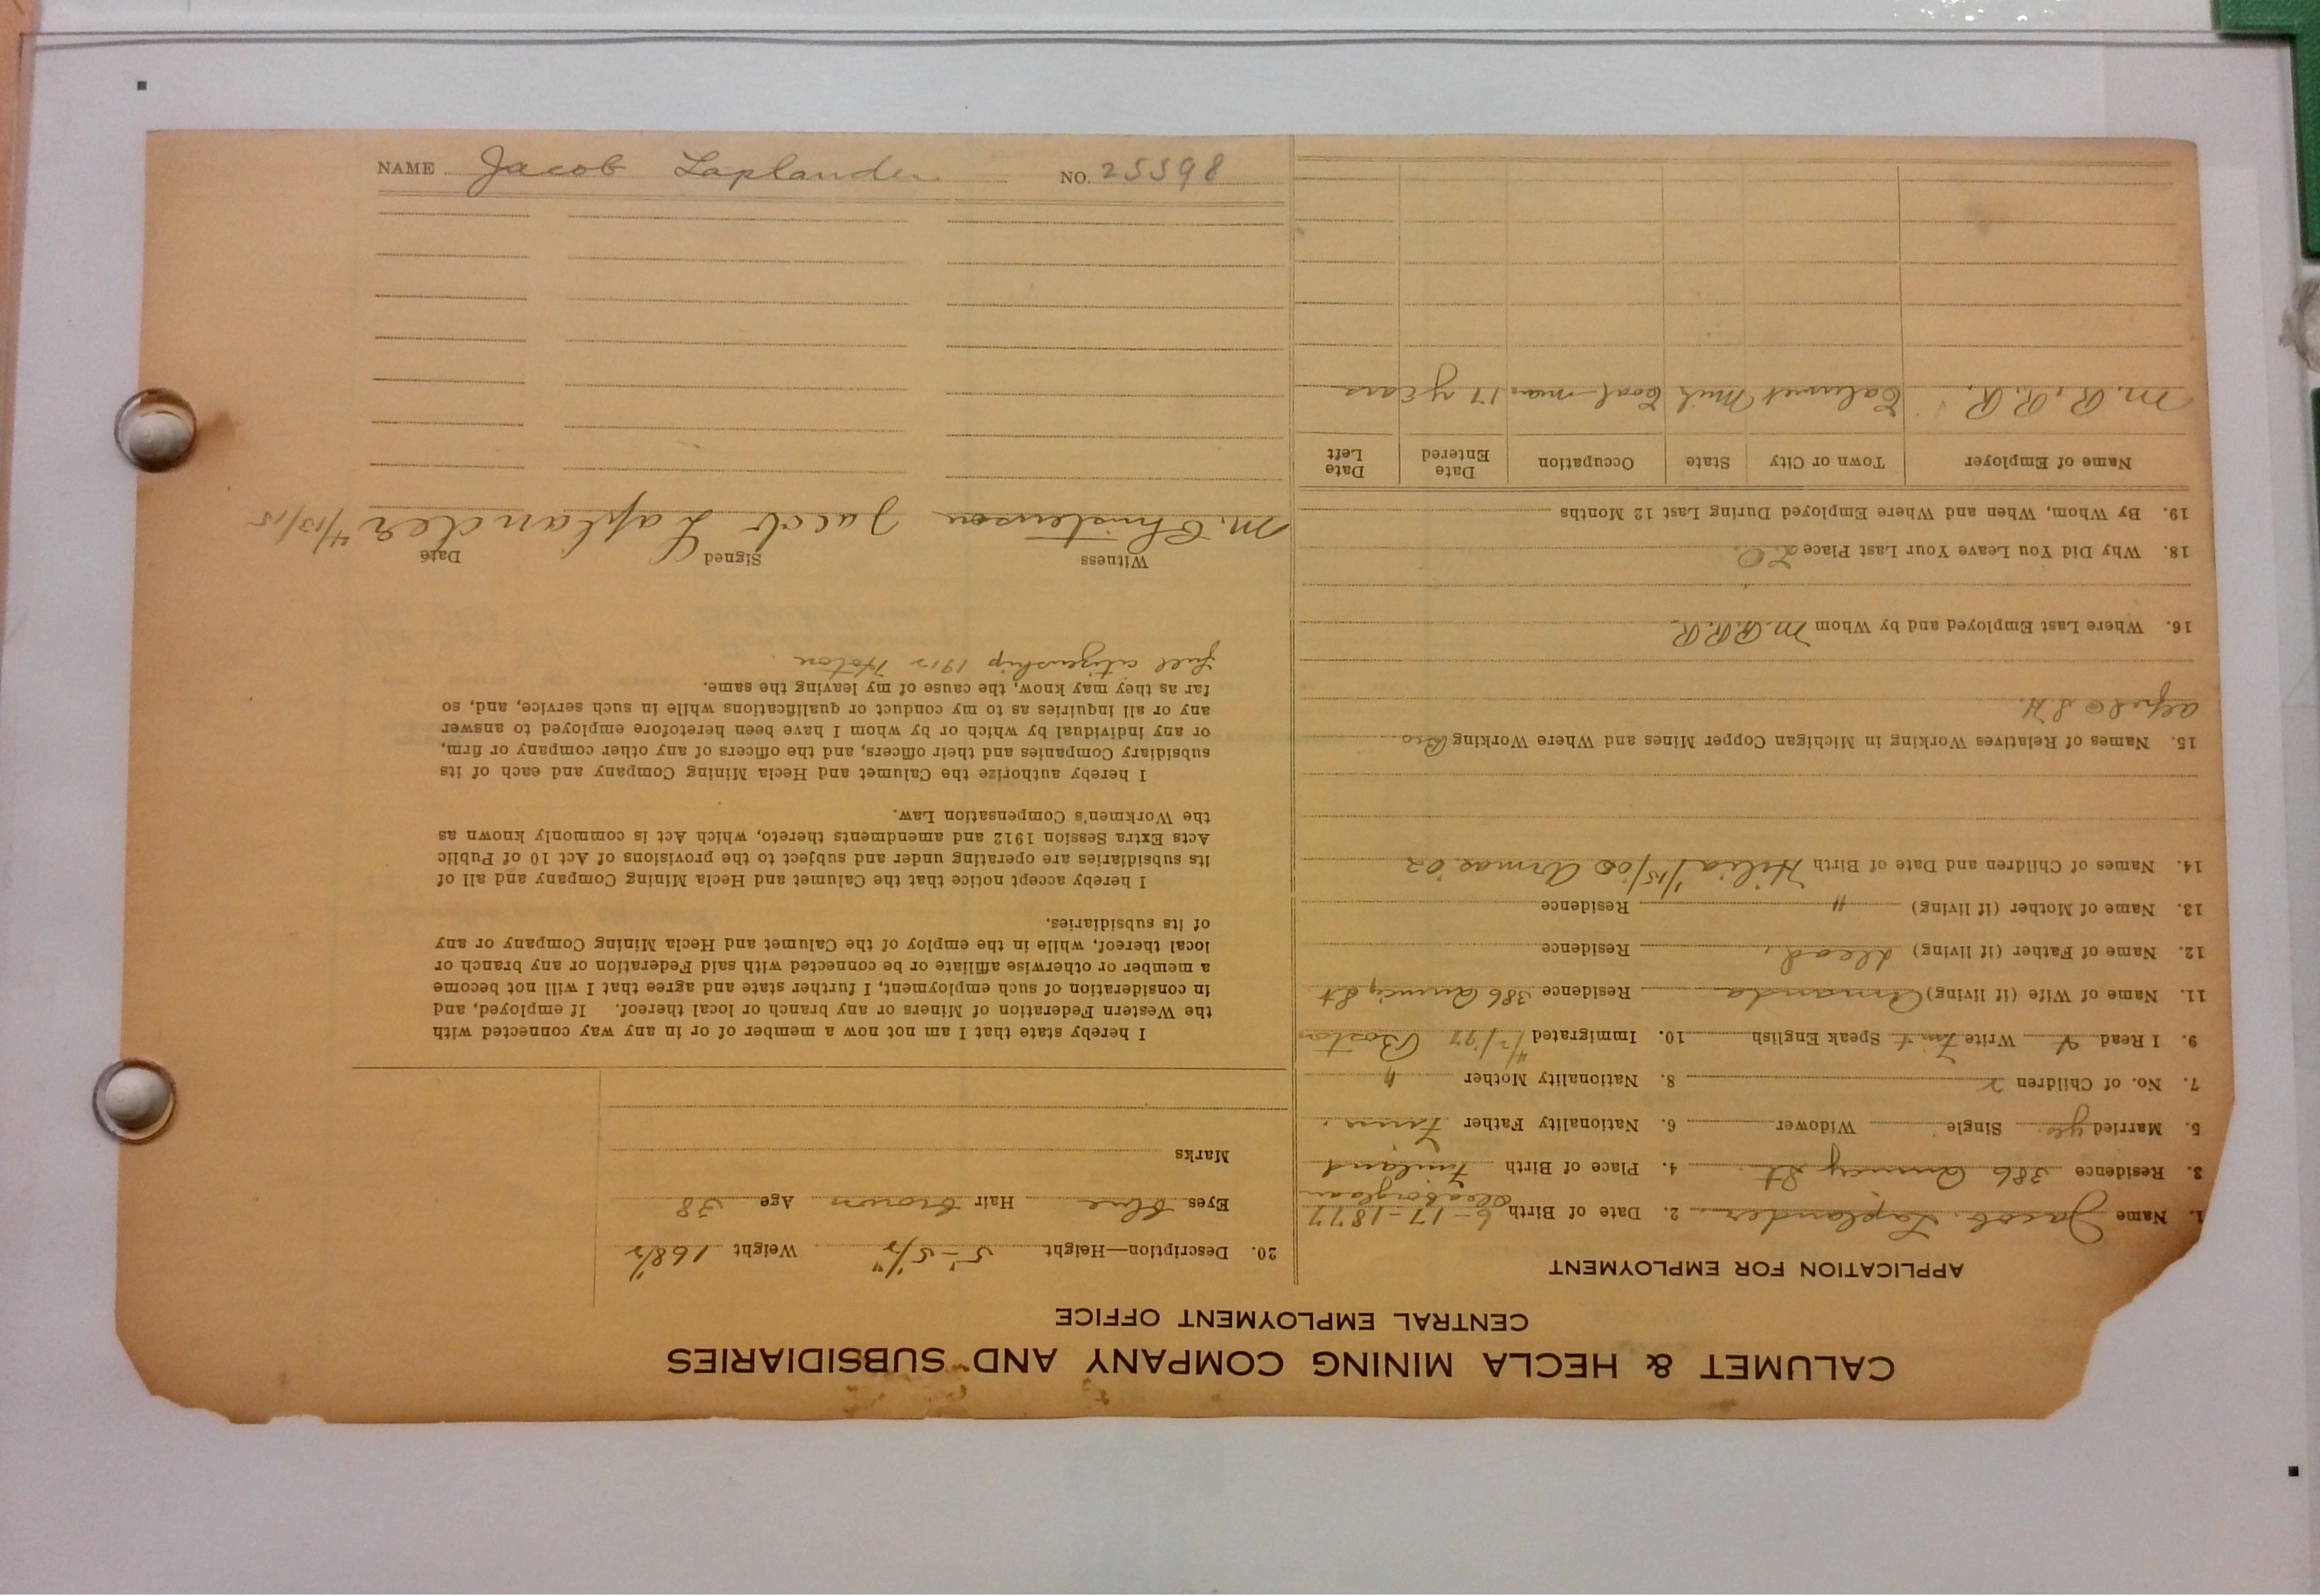 CALUMET & HECLA MINING COMPANY AND SUBSIDIARIES
CENTRAL EMPLOYMENT OFFICE
APPLICATION FOR EMPLOYMENT
1. Name Jacob Laplander. 2. Date of Birth 6-17-1877
3. Residence 386 Quincy St. 4. Place of Birth Finland
5. Married yes Single Widower 6. Nationality Father Finn.
7. No. of Children 2 8. Nationality Mother "
9. I Read Write Speak English 10. Immigrated Boston
11. Name of Wife (if living) Amanda Residence 386 Quincy St
12. Name of Father (if living) dead. Residence
13. Name of Mother (if living) " Residence
14. Names of Children and Date of Birth Hilia Armas '02
15. Names of Relatives Working in Michigan Copper Mines and Where Working Bro
16. Where Last Employed and by Whom M.R.R.R.
18. Why Did You Leave Your Last Place
19. By Whom, When and Where Employed During Last 12 Months
Name of Employer Town or City State Occupation Date Entered Date Left
M.R.R.R. Calumet Mich Coal man 17 years
20. Description—Height 5'-5 1/2" Weight 168 1/2
Eyes blue Hair brown Age 38
Marks
I hereby state that I am not now a member of or in any way connected with
the Western Federation of Miners or any branch or local thereof. If employed, and
in consideration of such employment, I further state and agree that I will not become
a member or otherwise affiliate or be connected with said Federation or any branch or
local thereof, while in the employ of the Calumet and Hecla Mining Company or any
of its subsidiaries.
I hereby accept notice that the Calumet and Hecla Mining Company and all of
its subsidiaries are operating under and subject to the provisions of Act 10 of Public
Acts Extra Session 1912 and amendments thereto, which Act is commonly known as
the Workmen's Compensation Law.
I hereby authorize the Calumet and Hecla Mining Company and each of its
subsidiary Companies and their officers, and the officers of any other company or firm,
or any individual by which or by whom I have been heretofore employed to answer
any or all inquiries as to my conduct or qualifications while in such service, and, so
far as they may know, the cause of my leaving the same.
full citizenship 1912 Hoton
Witness Signed Date
M. Christenson Jacob Laplander 4/13/15
NAME Jacob Laplander NO. 25598